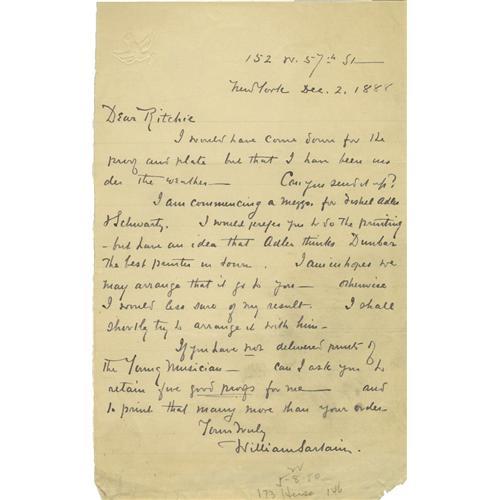 152 W. 57th St
New York Dec. 2, 1888
Dear Ritchie
I would have come down for the
proof and plate but that I have been un
der the weather — Can you send it up?
I am commencing a mezzo. for Fishel Adler
& Schwartz. I would prefer you to do the printing
- but have an idea that Adler thinks Dunbar
the best printer in town. I am in hopes we
may arrange that it go to you — otherwise
I would less sure of my result. I shall
shortly try to arrange it with him —
If you have not delivered prints of
the Young Musician — can I ask you to
retain five good proofs for me — and
to print that many more than your order
Yours truly
William Sartain.
5-8-80
173
146